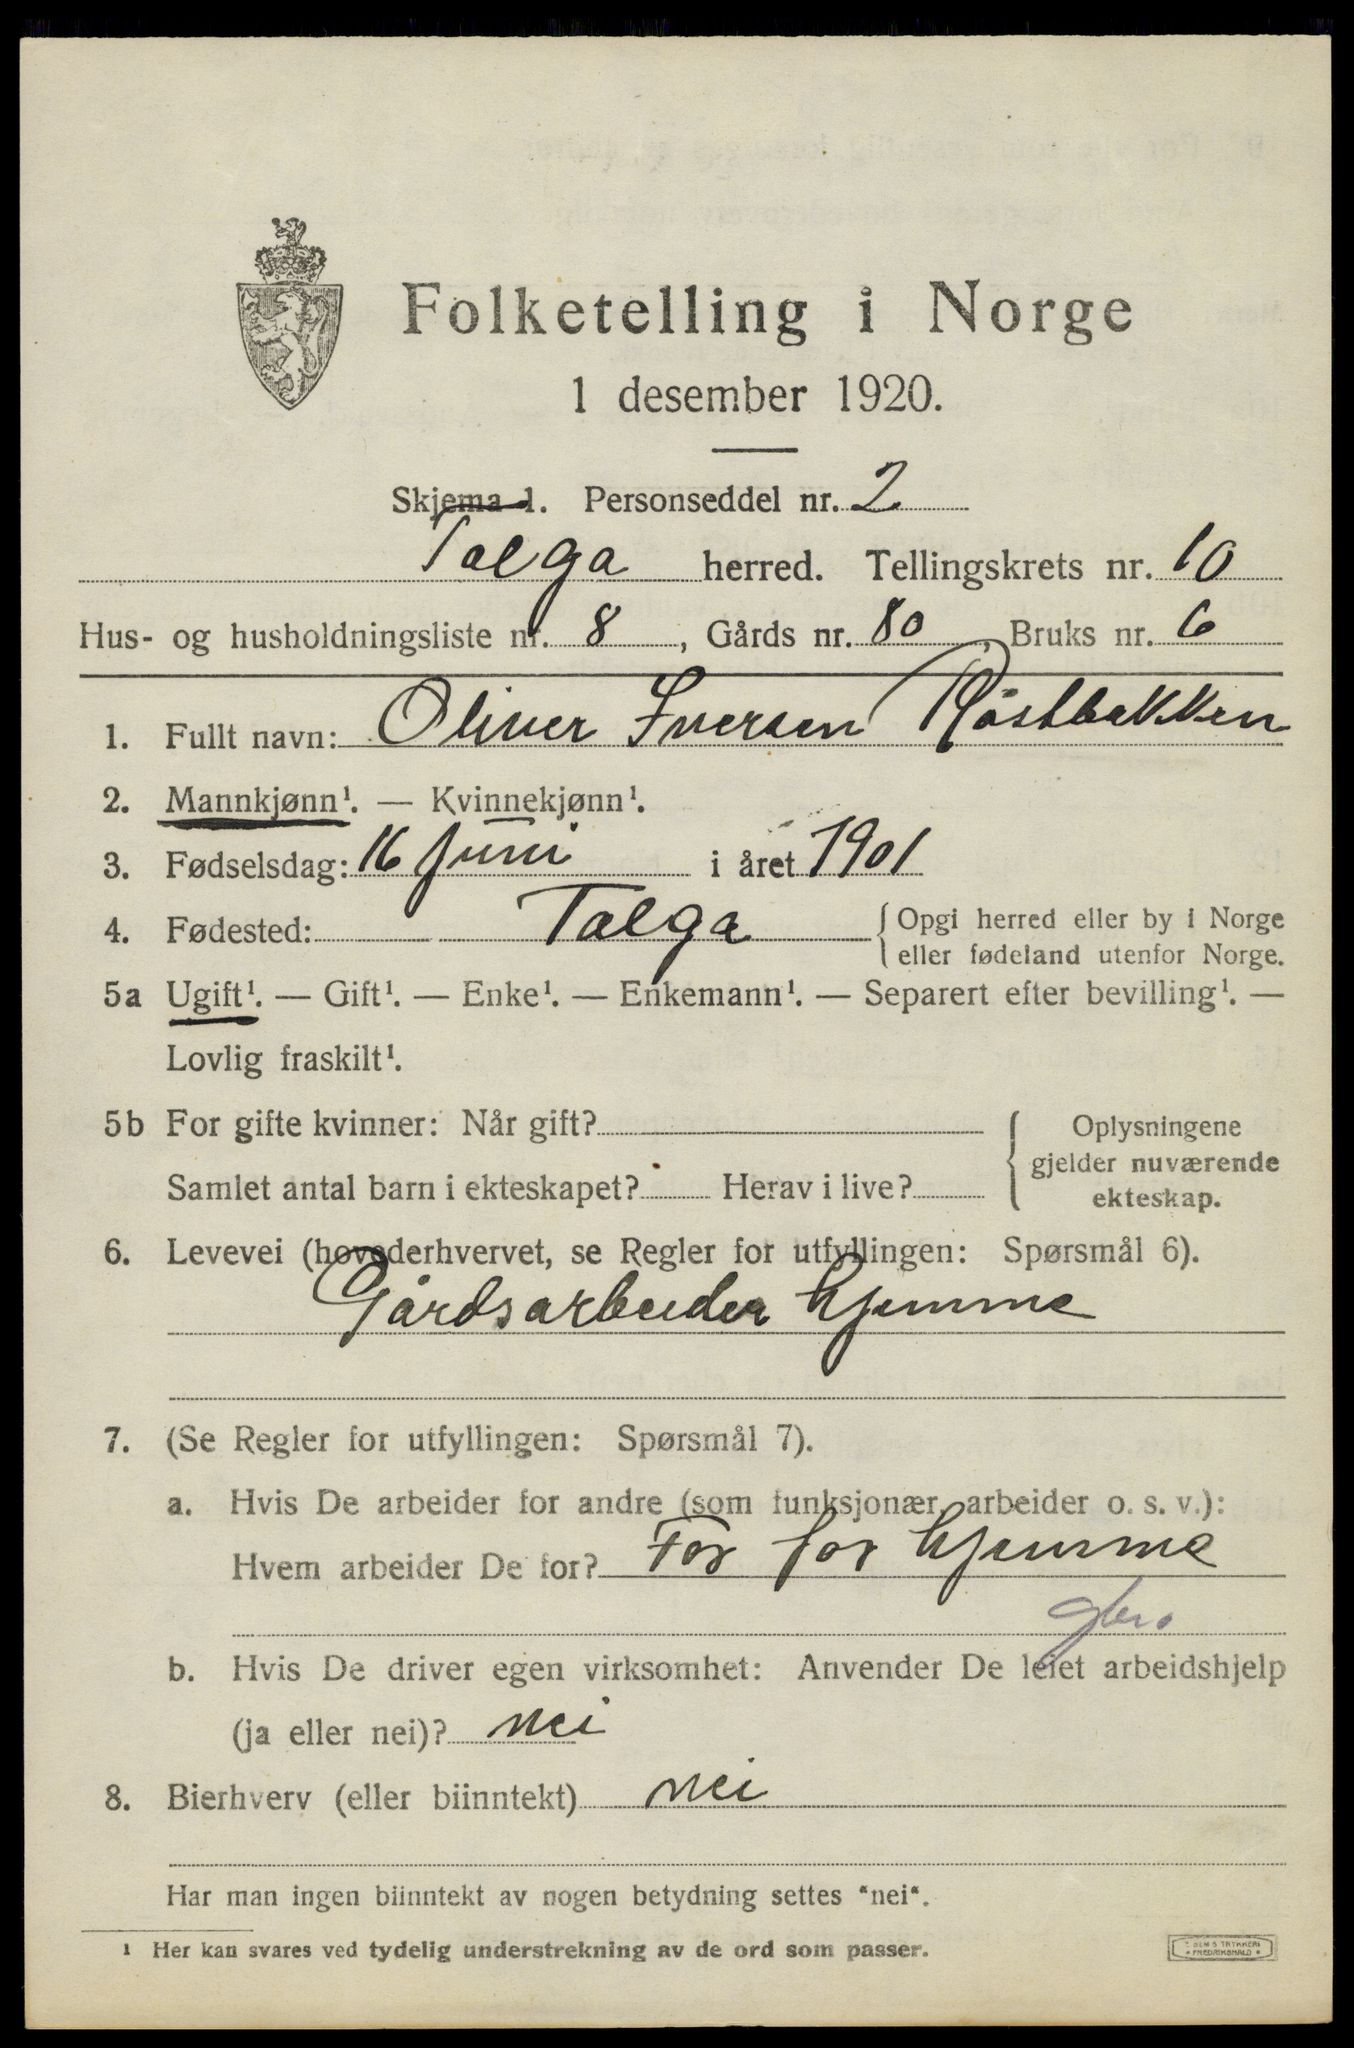 Folketelling i Norge
1 desember 1920.
Skjema 1. Personseddel nr. 2
Tolga herred. Tellingskrets nr. 10
Hus- og husholdningsliste nr. 8, Gårds nr. 80, Bruks nr. 6
1. Fullt navn: Oliver Iversen Röstbakken
2. Mannkjønn¹. — Kvinnekjønn¹.
3. Fødselsdag: 16 juni i året 1901
4. Fødested: Tolga { Opgi herred eller by i Norge
eller fødeland utenfor Norge.
5a Ugift¹. — Gift¹. — Enke¹. — Enkemann¹. — Separert efter bevilling¹. —
Lovlig fraskilt¹.
5b For gifte kvinner: Når gift?
Samlet antal barn i ekteskapet? Herav i live?
Oplysningene
gjelder nuværende
ekteskap.
6. Levevei (hovederhvervet, se Regler for utfyllingen: Spørsmål 6).
Gårdsarbeider hjemme
7. (Se Regler for utfyllingen: Spørsmål 7).
a. Hvis De arbeider for andre (som funksjonær, arbeider o. s. v.):
Hvem arbeider De for? For far hjemme
b. Hvis De driver egen virksomhet: Anvender De leiet arbeidshjelp
(ja eller nei)? nei
8. Bierhverv (eller biinntekt) nei
Har man ingen biinntekt av nogen betydning settes "nei".
¹ Her kan svares ved tydelig understrekning av de ord som passer.